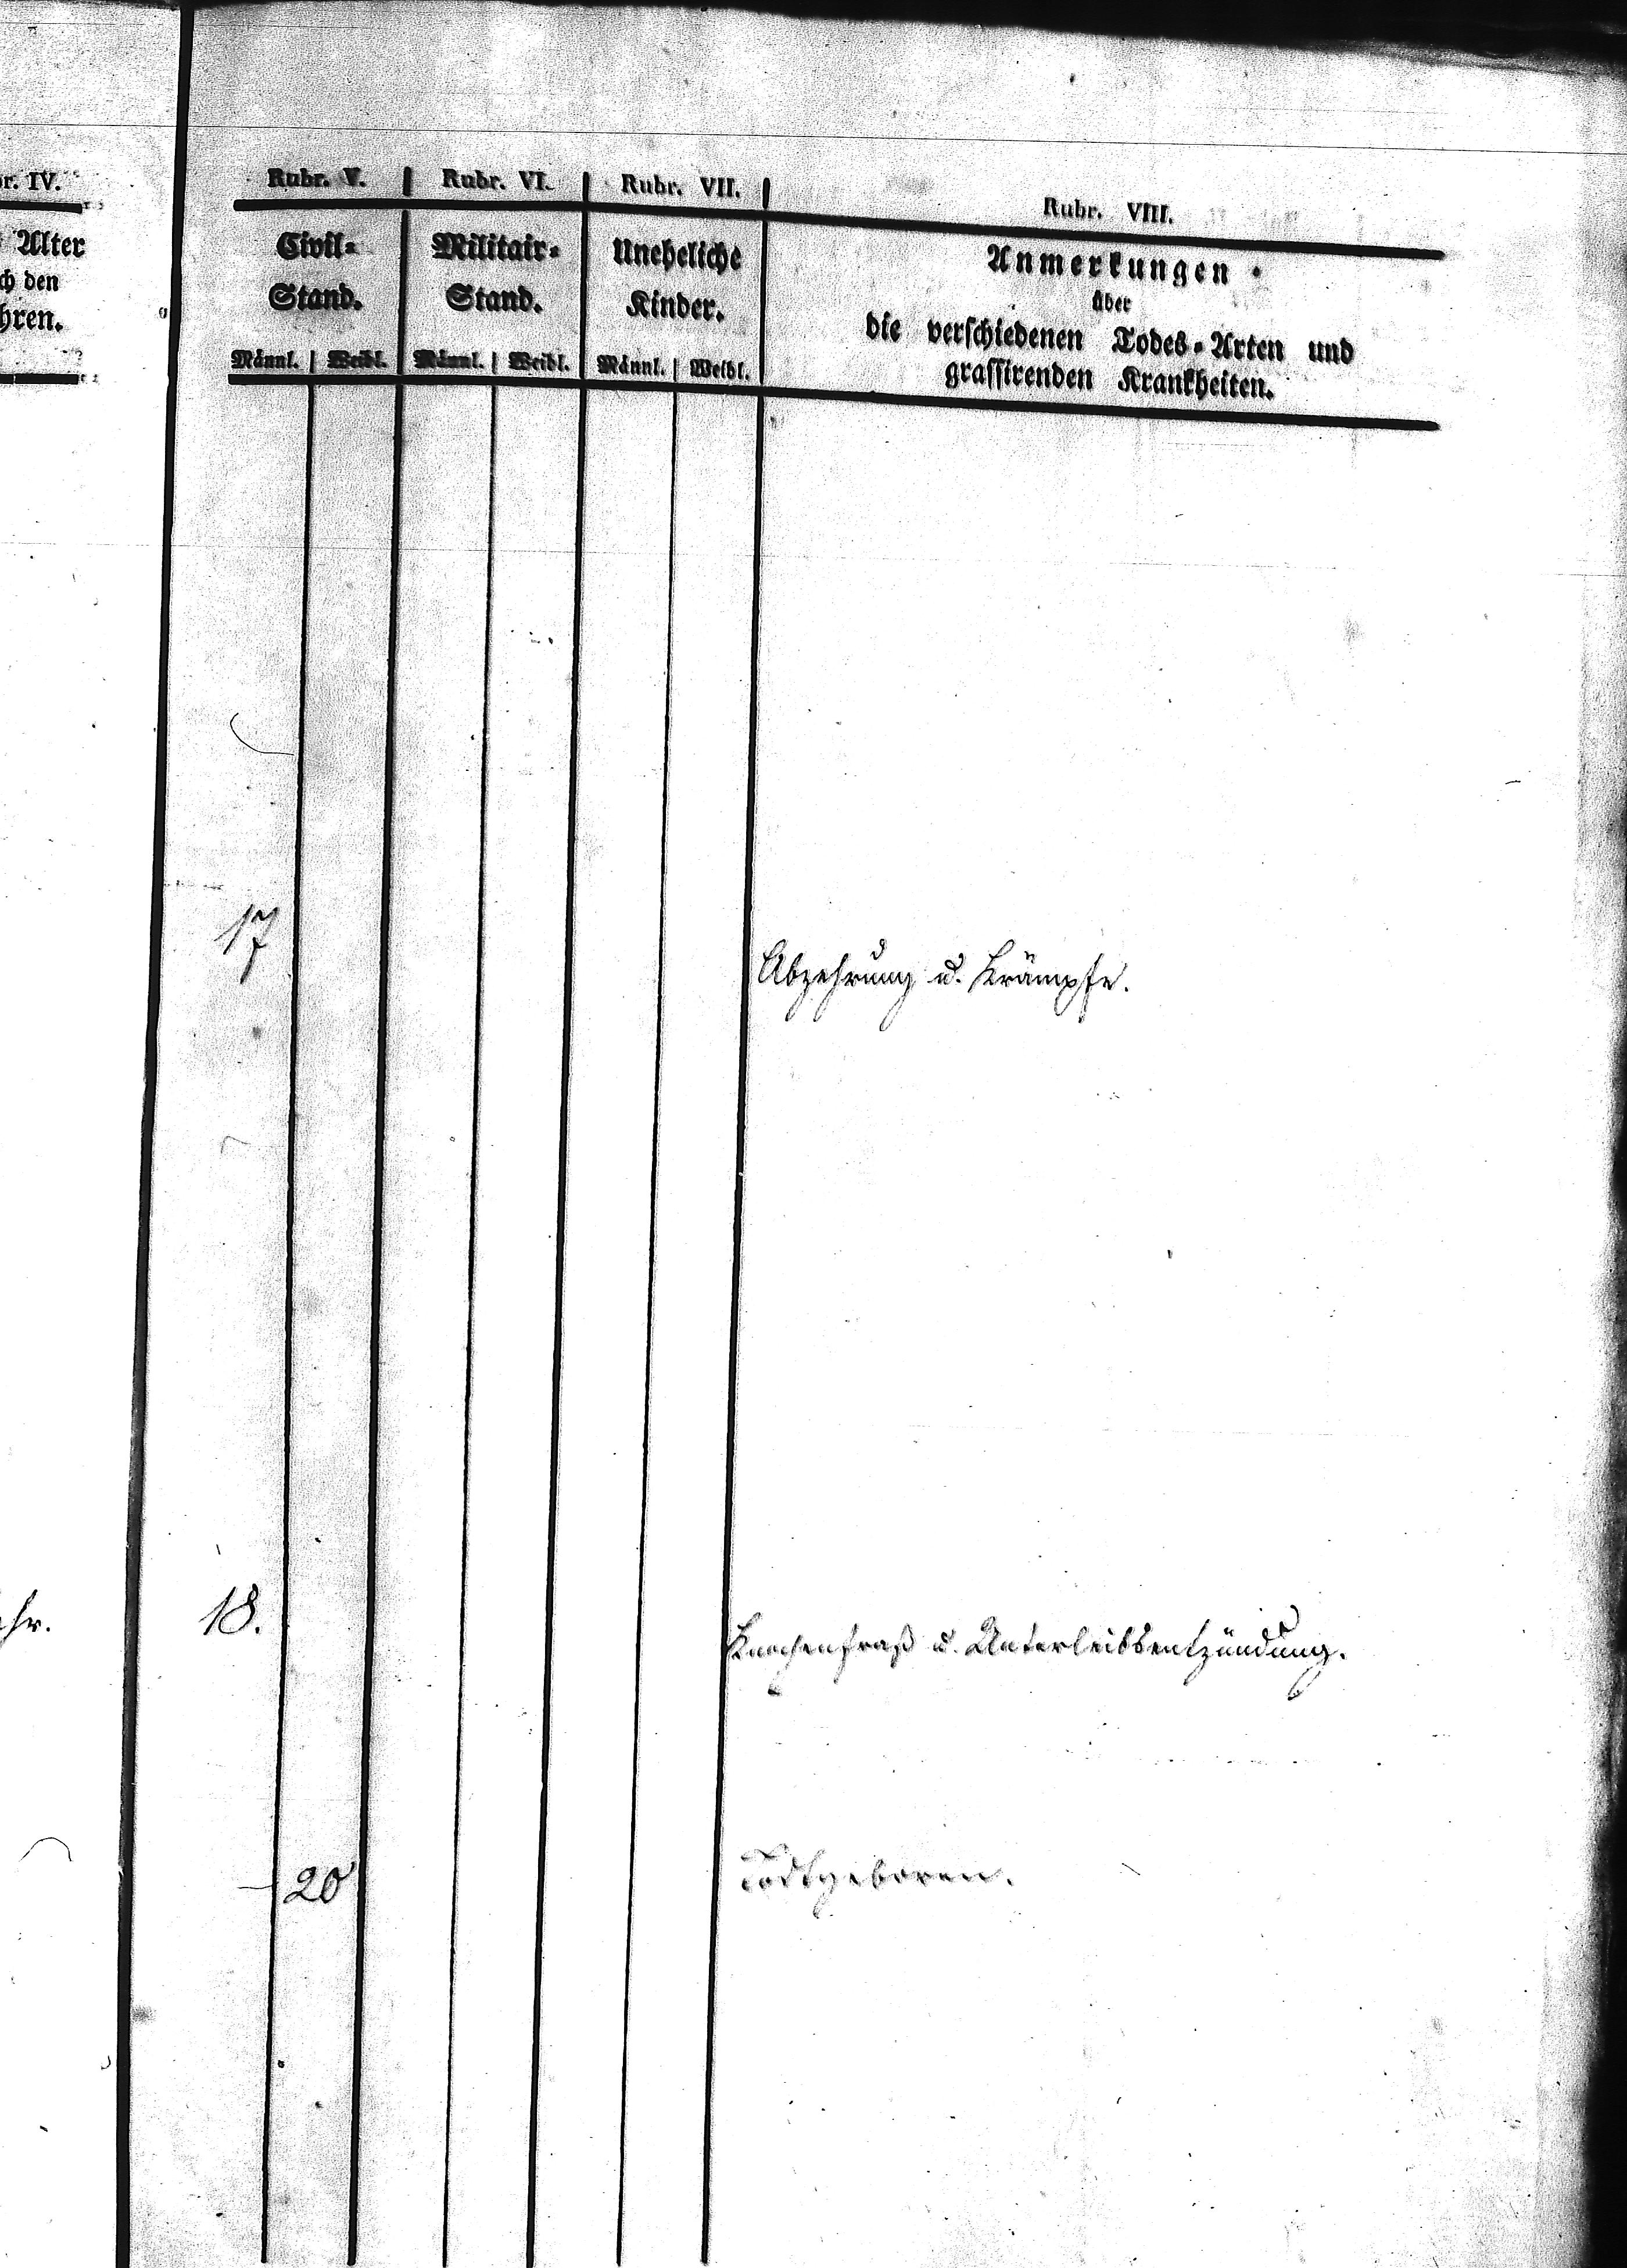 r. IV.
Alter
ch den
hren.
Rubr. V.
Rubr. VI.
Rubr. VII.
Rubr. VIII.
Civil-
Stand.
Militair-
Stand.
Uneheliche
Kinder.
Anmerkungen
über
die verschiedenen Todes-Arten und
grassirenden Krankheiten.
Männl. Weibl. Männl. Weibl. Männl. Weibl.
17
Abzehrung u. Krämpfe.
hr.
18.
Knochenfraß u. Unterleibsentzündung.
20
Todtgeboren.